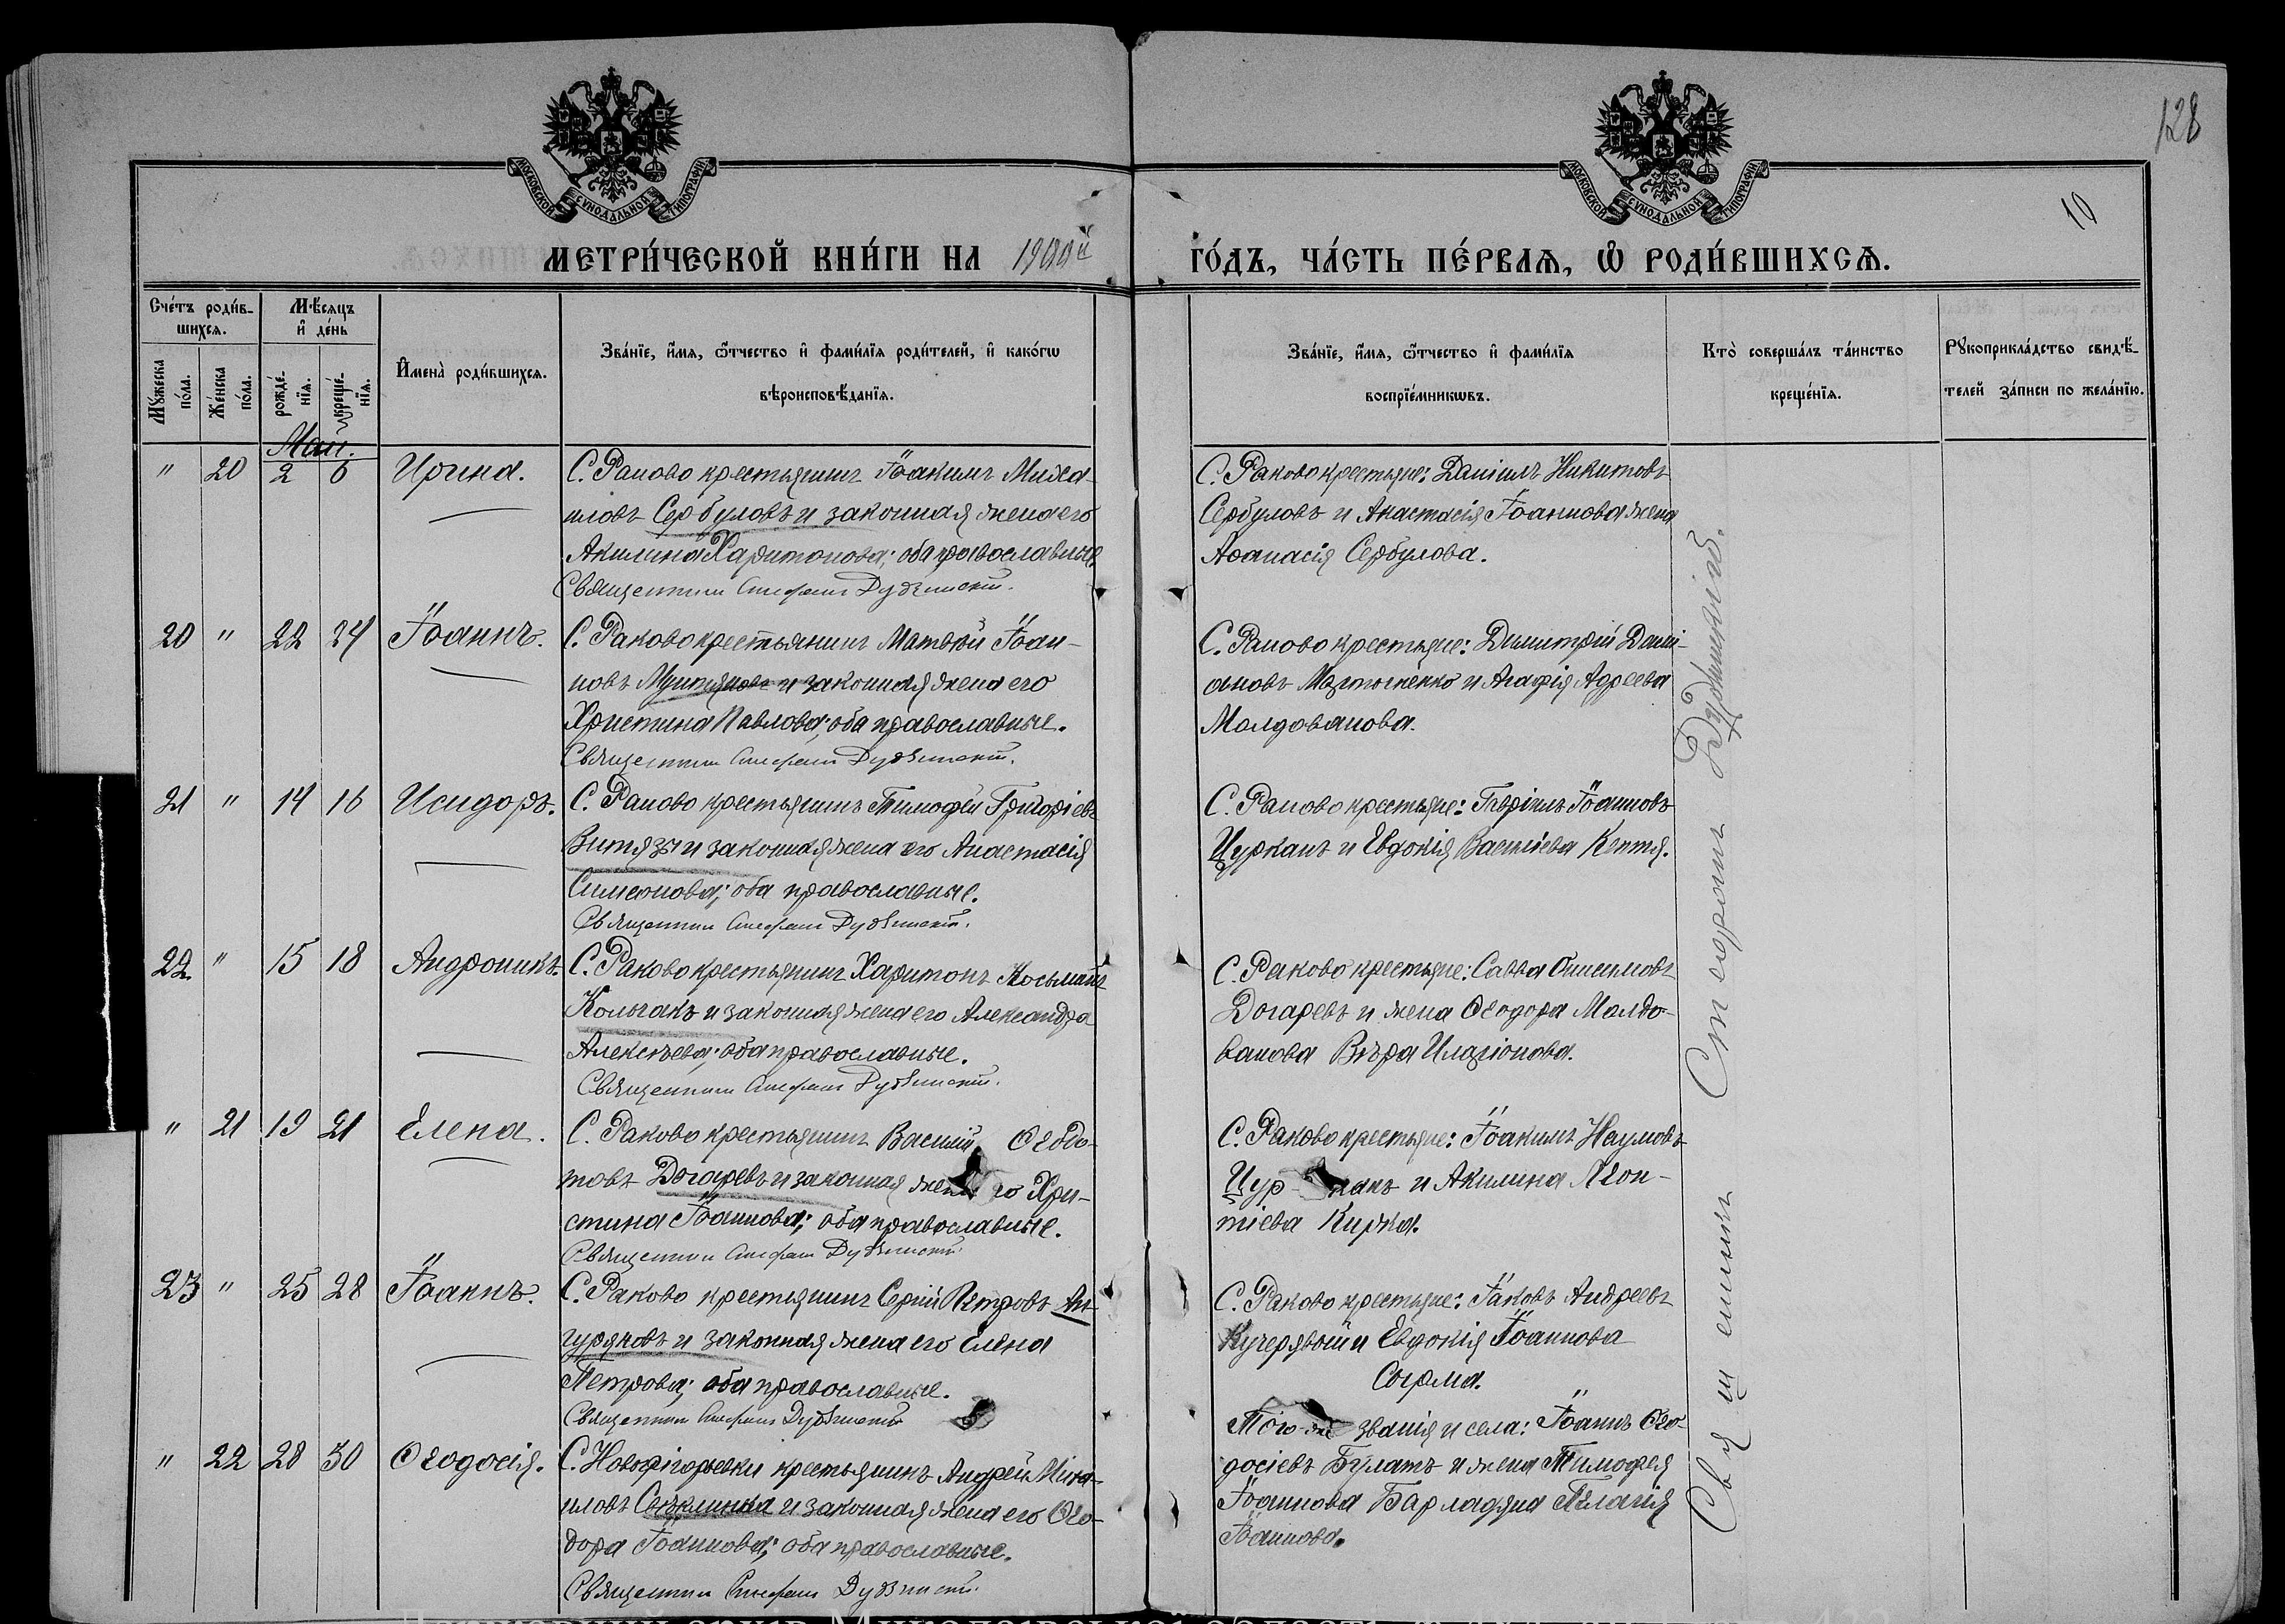 128
10
МОСКОВСКОЙ СѴНОДАЛЬНОЙ ТИПОГРАФІИ
МОСКОВСКОЙ СѴНОДАЛЬНОЙ ТИПОГРАФІИ
МЕТРИ́ЧЕСКОЙ КНИ́ГИ НА
ГО́ДЪ, ЧА́СТЬ ПЕ́РВАѦ, Ѡ РОДИ́ВШИХСѦ.
Сче́тъ роди́в-
шихсѧ.
Мѣ́сяцъ
и҆ де́нь
Мꙋ́жеска по́ла.
Же́нска по́ла.
рожде́-нїѧ.
креще́-нїѧ.
И҆мена̀ роди́вшихсѧ.
Зва́нїе, и҆́мѧ, ѻ҆́тчество и҆ фами́лїѧ роди́телей, и҆ како́гѡ
вѣроисповѣ́данїѧ.
Зва́нїе, и҆́мѧ, ѻ҆́тчество и҆ фами́лїѧ
воспрїе́мникѡвъ.
Кто̀ соверша́лъ та́инство
креще́нїѧ.
Рꙋкоприкла́дство свидѣ́-
телей за́писи по жела́нїю.
Май.
" 20 2 6 Ирина.
С. Раково крестьянинъ Іоакимъ Миха-
иловъ Сербуловъ и законная жена его
Акилина Харитонова; оба православные.
Священникъ Стефанъ Дудзинскій.
С. Раково крестьяне: Даніилъ Никитовъ
Сербуловъ и Анастасія Іоаннова жена
Афанасія Сербулова.
20 " 22 24 Іоаннъ.
С. Раково крестьянинъ Матвѣй Іоан-
новъ Мунтяновъ и законная жена его
Христина Павлова; оба православные.
Священникъ Стефанъ Дудзинскій.
С. Раково крестьяне: Димитрій Дамі-
ановъ Мартыненко и Агафія Адреева
Молдованова.
21 " 14 16 Исидоръ.
С. Раково крестьянинъ Тимофей Григоріевъ
Витязь и законная жена его Анастасія
Симеонова; оба православные.
Священникъ Стефанъ Дудзинскій.
С. Раково крестьяне: Гавріилъ Іоанновъ
Цурканъ и Евдокія Василіева Кептя.
22 " 15 18 Андроникъ.
С. Раково крестьянинъ Харитонъ Косьминъ
Колчакъ и законная жена его Александра
Алексѣева; оба православные.
Священникъ Стефанъ Дудзинскій.
С. Раково крестьяне: Савва Онисимовъ
Догаревъ и жена Ѳеодора Молдо-
ванова Вѣра Иларіонова.
" 21 19 21 Елена.
С. Раково крестьянинъ Василій Ѳеодо-
товъ Догаревъ и законная жена его Хри-
стина Іоаннова; оба православные.
Священникъ Стефанъ Дудзинскій.
С. Раково крестьяне: Іоакимъ Наумовъ
Цур-канъ и Акилина Леон-
тіева Кирка.
23 " 25 28 Іоаннъ.
С. Раково крестьянинъ Сергій Петровъ Ан-
гуряновъ и законная жена его Елена
Петрова; оба православные.
Священникъ Стефанъ Дудзинскій
С. Раково крестьяне: Іаковъ Андреевъ
Кучерявый и Евдокія Іоаннова
Сырма.
" 22 28 30 Ѳеодосія.
С. Новогригорьевки крестьянинъ Андрей Миха-
иловъ Свѣклинка и законная жена его Ѳео-
дора Іоаннова; оба православные.
Священникъ Стефанъ Дудзинскій.
Того-же званія и села: Іоаннъ Ѳео-
досіевъ Булатъ и жена Тимофея
Іоаннова Барладяна Пелагія
Іоаннова.
Священникъ Стефанъ Дудзинскій.